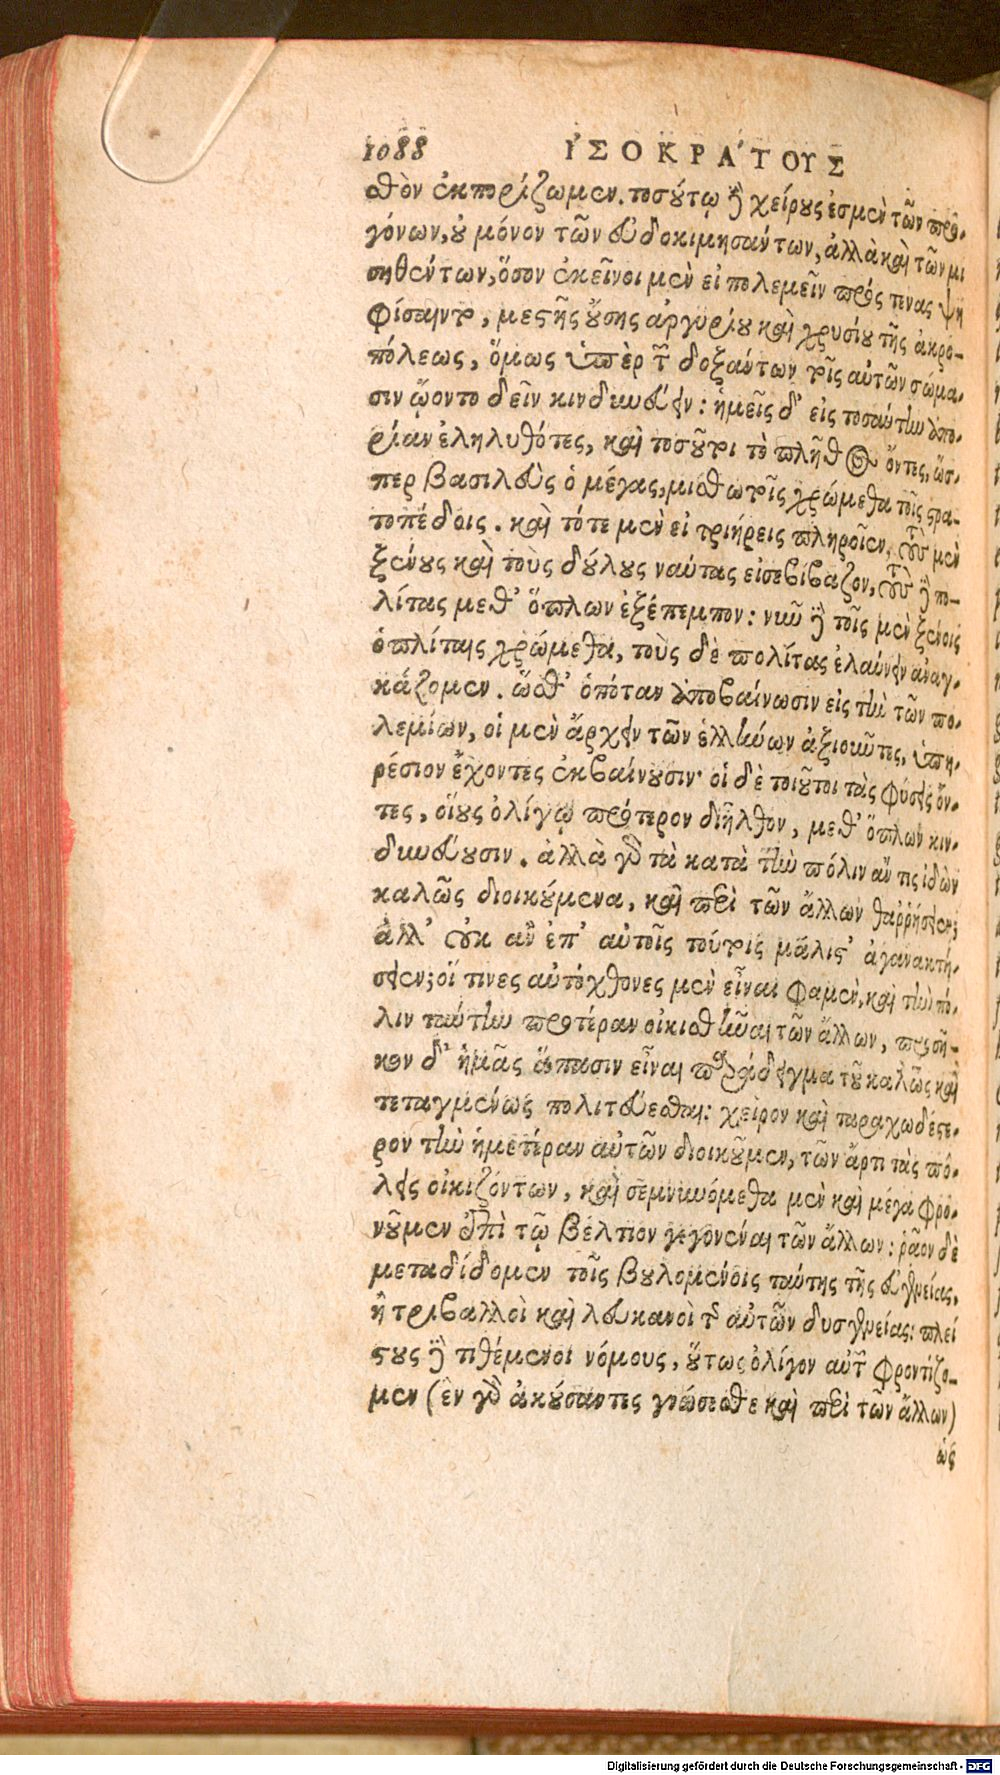 1088 ἸΣΟΚΡΆΤΟΥΣ
σθὸν ἐκπορίζωμεν. τοσούτῳ δὲ χείρους ἐσμὲν τῶν προ-
γόνων, οὐ μόνον τῶν εὐδοκιμησάντων, ἀλλὰ καὶ τῶν μι
σηθέντων, ὅσον ἐκεῖνοι μὲν εἰ πολεμεῖν πρός τινας ψη
φίσαιντο, μεστῆς οὔσης ἀργυρίου καὶ χρυσίου τῆς ἀκρο-
πόλεως, ὅμως ὑπὲρ τῶν δοξάντων τοῖς αὑτῶν σώμα-
σιν ᾤοντο δεῖν κινδυνεύειν: ἡμεῖς δ' εἰς τοσαύτην ἀπο-
ρίαν ἐληλυθότες, καὶ τοσοῦτοι τὸ πλῆθος ὄντες, ὥσ-
περ βασιλεὺς ὁ μέγας, μισθωτοῖς χρώμεθα τοῖς στρα-
τοπέδοις. καὶ τότε μὲν εἰ τριήρεις πληροῖεν, τοὺς μὲν
ξένους καὶ τοὺς δούλους ναύτας εἰσεβίβαζον, τοὺς δὲ πο-
λίτας μεθ' ὅπλων ἐξέπεμπον: νῦν δὲ τοῖς μὲν ξένοις
ὁπλίταις χρώμεθα, τοὺς δὲ πολίτας ἐλαύνειν ἀναγ-
κάζομεν. ὥσθ' ὁπόταν ἀποβαίνωσιν εἰς τὴν τῶν πο-
λεμίων, οἱ μὲν ἄρχειν τῶν ἑλλήνων ἀξιοῦντες, ὑπη-
ρέσιον ἔχοντες ἐκβαίνουσιν· οἱ δὲ τοιοῦτοι τὰς φύσεις ὄν-
τες, οἵους ὀλίγῳ πρότερον διῆλθον, μεθ' ὅπλων κιν-
δυνεύουσιν. ἀλλὰ γὰρ τὰ κατὰ τὴν πόλιν ἄν τις ἰδὼν
καλῶς διοικούμενα, καὶ περὶ τῶν ἄλλων θαῤῥήσειεν;
ἀλλ' οὐκ ἂν ἐπ' αὐτοῖς τούτοις μάλιστ' ἀγανακτή-
σειεν; οἵ τινες αὐτόχθονες μὲν εἶναί φαμεν, καὶ τὴν πό-
λιν ταύτην προτέραν οἰκισθῆναι τῶν ἄλλων, προσῆ-
κον δ' ἡμᾶς ἅπασιν εἶναι παράδειγμα τοῦ καλῶς καὶ
τεταγμένως πολιτεύεσθαι: χεῖρον καὶ ταραχωδέστε-
ρον τὴν ἡμετέραν αὐτῶν διοικοῦμεν, τῶν ἄρτι τὰς πό-
λεις οἰκιζόντων, καὶ σεμνυνόμεθα μὲν καὶ μέγα φρο-
νοῦμεν ἐπὶ τῷ βέλτιον γεγονέναι τῶν ἄλλων: ῥᾷον δὲ
μεταδίδομεν τοῖς βουλομένοις ταύτης τῆς εὐγενείας,
ἢ τριβαλλοὶ καὶ λευκανοὶ τῆς αὑτῶν δυσγενείας: πλεί
στους δὲ τιθέμενοι νόμους, οὕτως ὀλίγον αὐτῶν φροντίζο-
μεν (ἓν γὰρ ἀκούσαντες γνώσεσθε καὶ περὶ τῶν ἄλλων)
ὡς
Digitalisierung gefördert durch die Deutsche Forschungsgemeinschaft - DFG